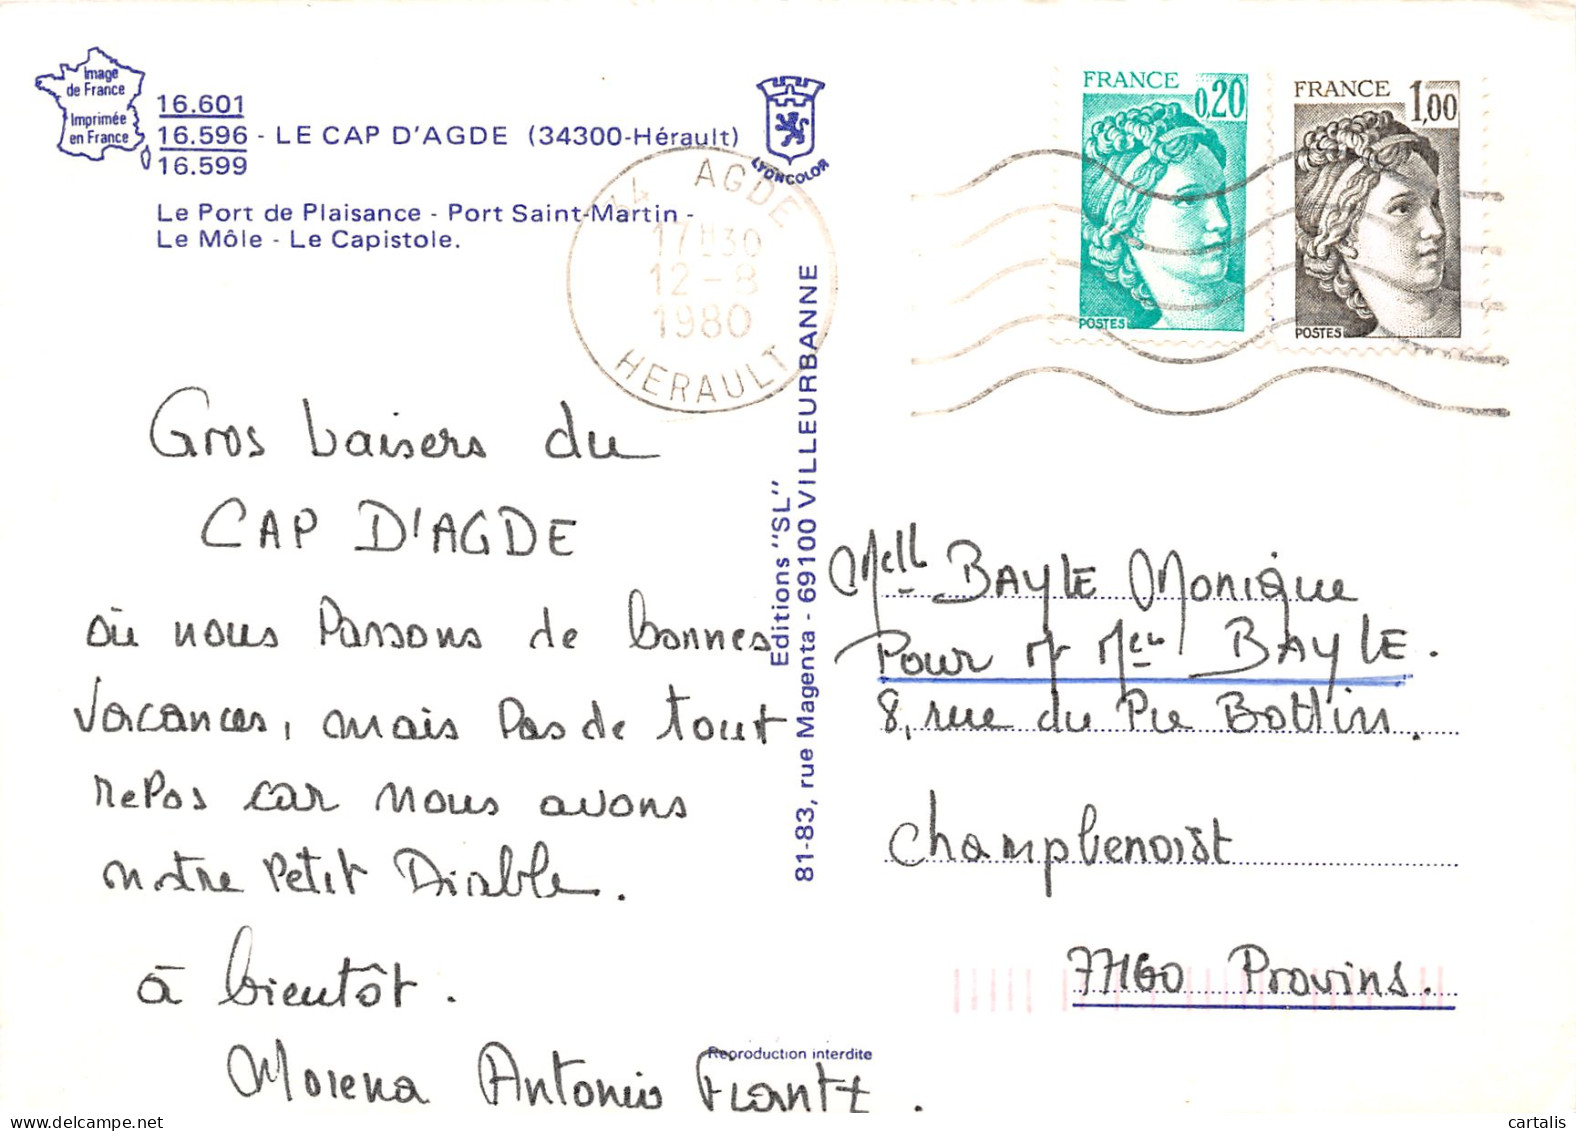 Image
de France
Imprimée
en France
16.601
16.596 - LE CAP D'AGDE (34300-Hérault)
16.599
Le Port de Plaisance - Port Saint-Martin -
Le Môle - Le Capistole.
LYONCOLOR
34 AGDE
17H30
12-8
1980
HERAULT
FRANCE
0,20
POSTES
FRANCE
1,00
POSTES
Gros baisers du
CAP D'AGDE
où nous Passons de bonnes
vacances, mais Pas de tout
repos car nous avons
notre Petit Diable.
à bientôt.
Morena Antonio Frantz.
Editions "SL"
81-83, rue Magenta - 69100 VILLEURBANNE
Mell BAYLE Monique
Pour BAYLE.
8, rue du Pre Bottin.
Champbenoist
77160 Provins.
Reproduction interdite
cartalis